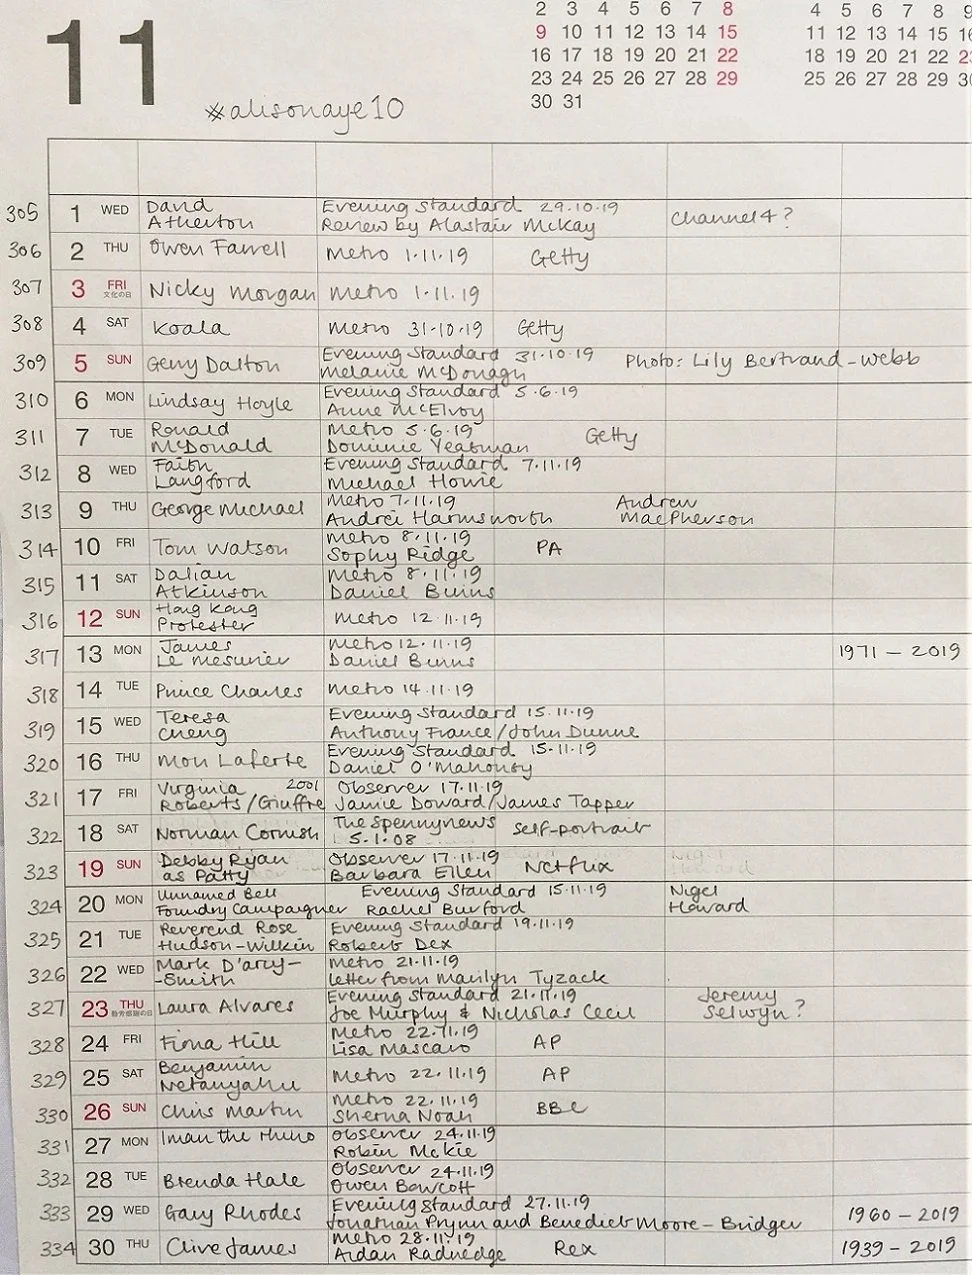 11
#alisonaye10
2 3 4 5 6 7 8
9 10 11 12 13 14 15
16 17 18 19 20 21 22
23 24 25 26 27 28 29
30 31
4 5 6 7 8 9
11 12 13 14 15 16
18 19 20 21 22 23
25 26 27 28 29 30
305 1 WED David Evening Standard 29.10.19
Atherton Review by Alastair McKay Channel 4?
306 2 THU Owen Farrell Metro 1.11.19 Getty
307 3 FRI Nicky Morgan Metro 1.11.19
文化の日
308 4 SAT Koala Metro 31.10.19 Getty
309 5 SUN Gerry Dalton Evening Standard 31.10.19 Photo: Lily Bertrand-Webb
Melanie McDonagh
310 6 MON Lindsay Hoyle Evening Standard 5.6.19
Anne McElvoy
311 7 TUE Ronald Metro 5.6.19 Getty
McDonald Dominic Yeatman
312 8 WED Faith Evening Standard 7.11.19
Langford Michael Howie
313 9 THU George Michael Metro 7.11.19 Andrew
Andrei Harmsworth MacPherson
314 10 FRI Tom Watson Metro 8.11.19 PA
Sophy Ridge
315 11 SAT Dalian Metro 8.11.19
Atkinson Daniel Binns
316 12 SUN Hong Kong Metro 12.11.19
Protester
317 13 MON James Metro 12.11.19 1971 – 2019
Le Mesurier Daniel Binns
318 14 TUE Prince Charles Metro 14.11.19
319 15 WED Teresa Evening Standard 15.11.19
Cheng Anthony France/John Dunne
320 16 THU Mon Laferte Evening Standard 15.11.19
Daniel O'Mahony
321 17 FRI Virginia 2001 Observer 17.11.19
Roberts/Giuffre Jamie Doward/James Tapper
322 18 SAT Norman Cornish The Spennynews self-portrait
5.1.08
323 19 SUN Debby Ryan Observer 17.11.19 Netflix
as Patty Barbara Ellen
324 20 MON Unnamed Bell Evening Standard 15.11.19 Nigel
Foundry Campaigner Rachel Burford Howard
325 21 TUE Reverend Rose Evening Standard 19.11.19
Hudson-Wilkin Robert Dex
326 22 WED Mark D'arcy- Metro 21.11.19
-Smith letter from Marilyn Tyzack
327 23 THU Laura Alvares Evening Standard 21.11.19 Jeremy
勤労感謝の日 Joe Murphy & Nicholas Cecil Selwyn?
328 24 FRI Fiona Hill Metro 22.11.19 AP
Lisa Mascaro
329 25 SAT Benjamin Metro 22.11.19 AP
Netanyahu
330 26 SUN Chris Martin Metro 22.11.19 BBC
Sherna Noah
331 27 MON Iman the rhino Observer 24.11.19
Robin McKie
332 28 TUE Brenda Hale Observer 24.11.19
Owen Bowcott
333 29 WED Gary Rhodes Evening Standard 27.11.19 1960 – 2019
Jonathan Prynn and Benedict Moore-Bridger
334 30 THU Clive James Metro 28.11.19 Rex 1939 – 2019
Aidan Radnedge